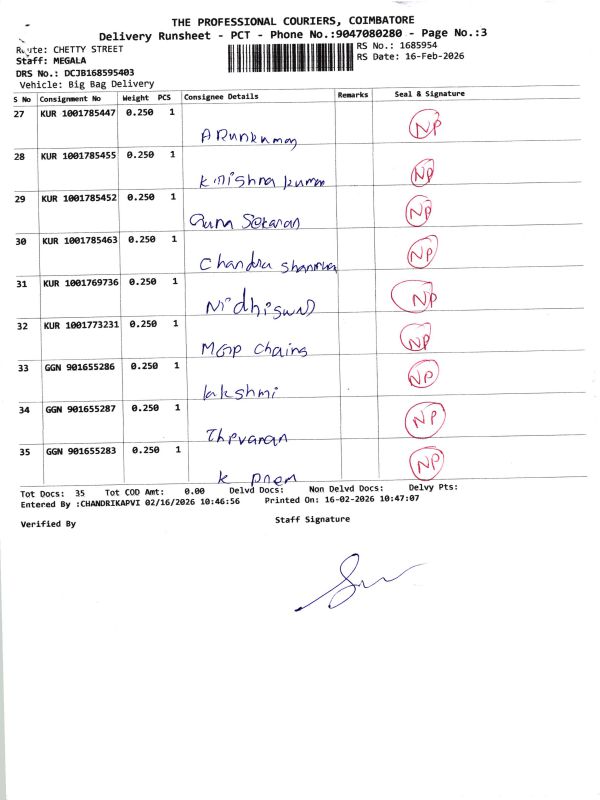 THE PROFESSIONAL COURIERS, COIMBATORE
Delivery Runsheet - PCT - Phone No.:9047080280 - Page No.:3
Route: CHETTY STREET
RS No.: 1685954
Staff: MEGALA
RS Date: 16-Feb-2026
DRS No.: DCJB168595403
Vehicle: Big Bag Delivery
S No Consignment No Weight PCS Consignee Details Remarks Seal & Signature
27 KUR 1001785447 0.250 1 NP
ARunkumar
28 KUR 1001785455 0.250 1 NP
Krishna kumar
29 KUR 1001785452 0.250 1 NP
Guna Sekaran
30 KUR 1001785463 0.250 1 NP
Chandra
31 KUR 1001769736 0.250 1 NP
32 KUR 1001773231 0.250 1 NP
MGP Chains
33 GGN 901655286 0.250 1 NP
lakshmi
34 GGN 901655287 0.250 1 NP
35 GGN 901655283 0.250 1 NP
K prem
Tot Docs: 35 Tot COD Amt: 0.00 Delvd Docs: Non Delvd Docs: Delvy Pts:
Entered By :CHANDRIKAPVI 02/16/2026 10:46:56 Printed On: 16-02-2026 10:47:07
Verified By Staff Signature